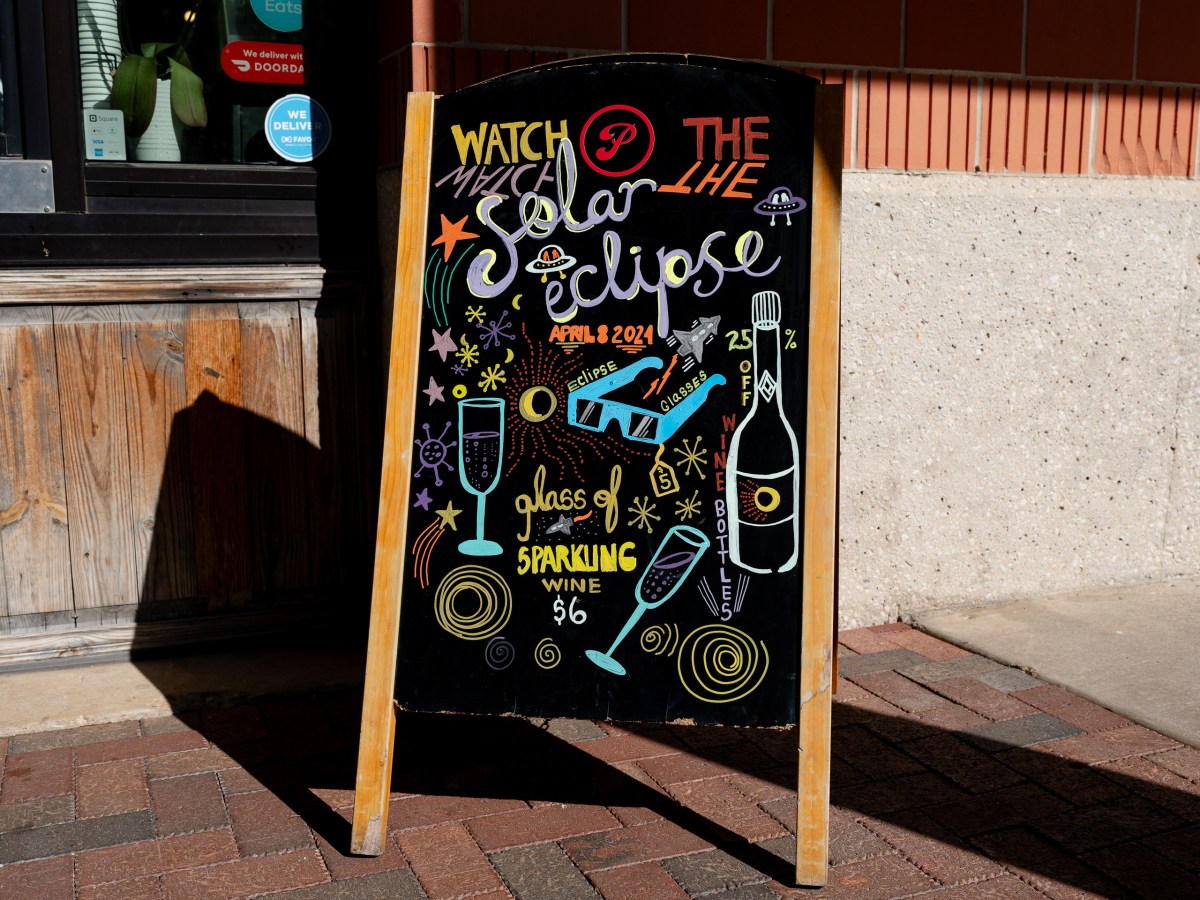 Eats
We deliver wit
DOORDA
WE
DELIVER
FAVO
Square
VISA
WATCH P THE
WATCH THE
Solar
eclipse
APRIL 8 2024
Eclipse
Glasses
$5
25 %
OFF
WINE
BOTTLES
glass of
SPARKLING
WINE
$6